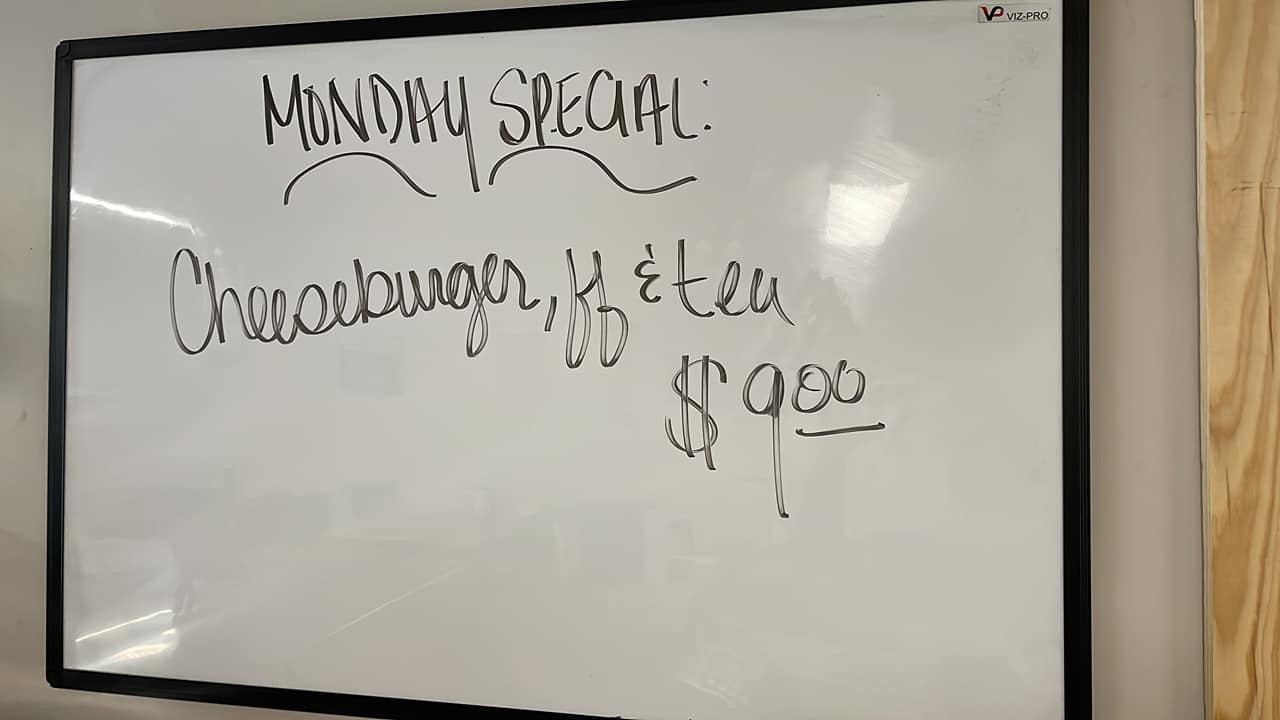 VP VIZ-PRO
MONDAY SPECIAL:
Cheeseburger, ff & tea
$ 900